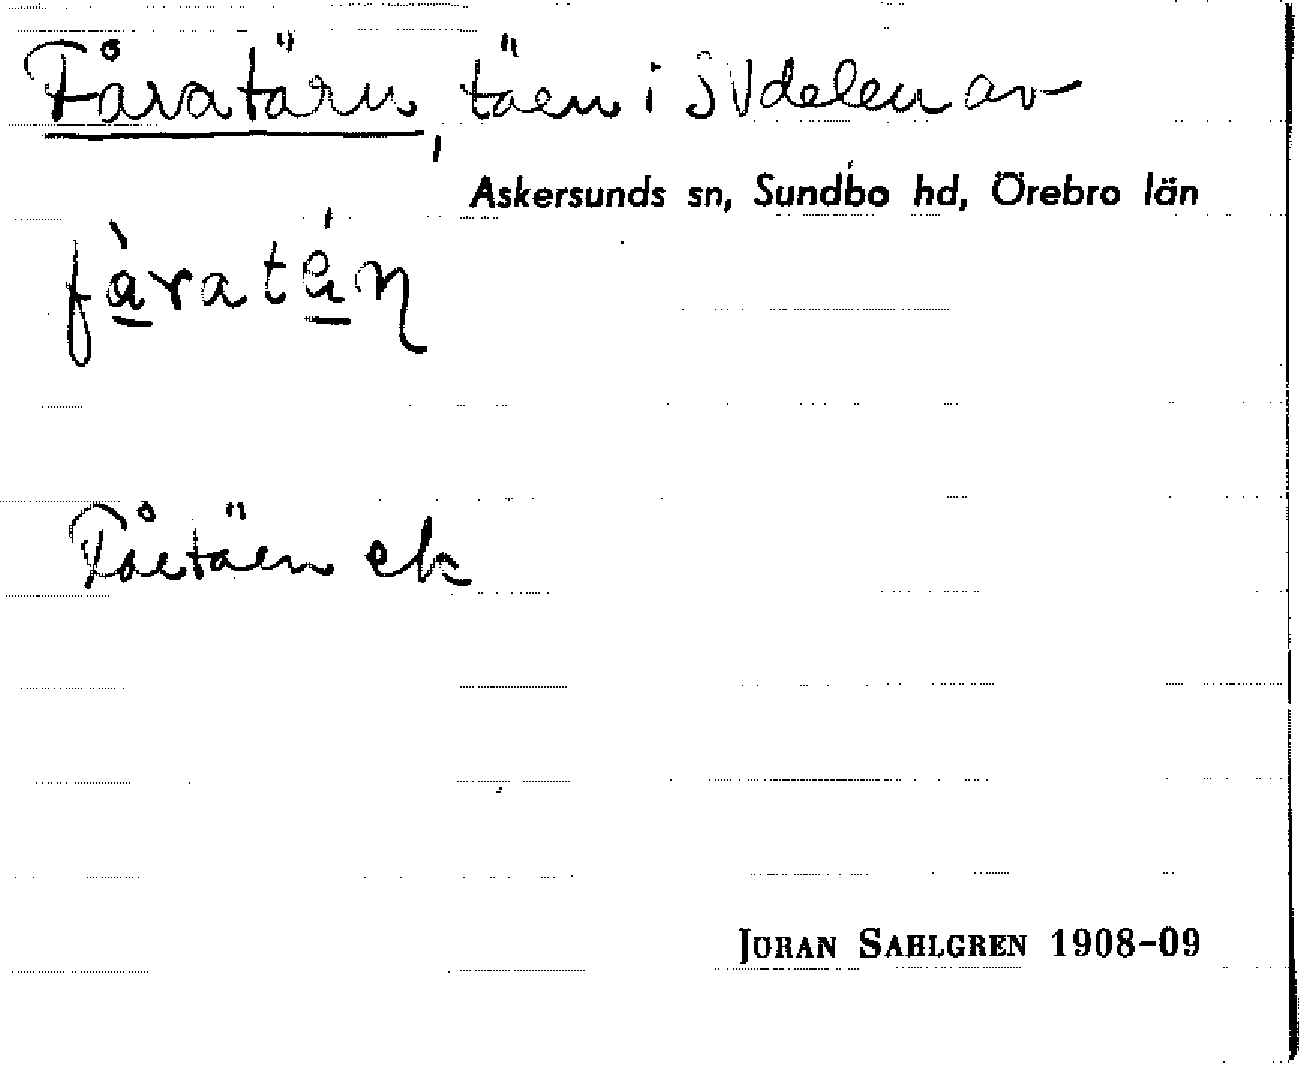 Fåratärn, täen i SVdelen av
Askersunds sn, Sundbo hd, Örebro län
fàratä́n
Fåetäen ek
JORAN SAHLGREN 1908-09